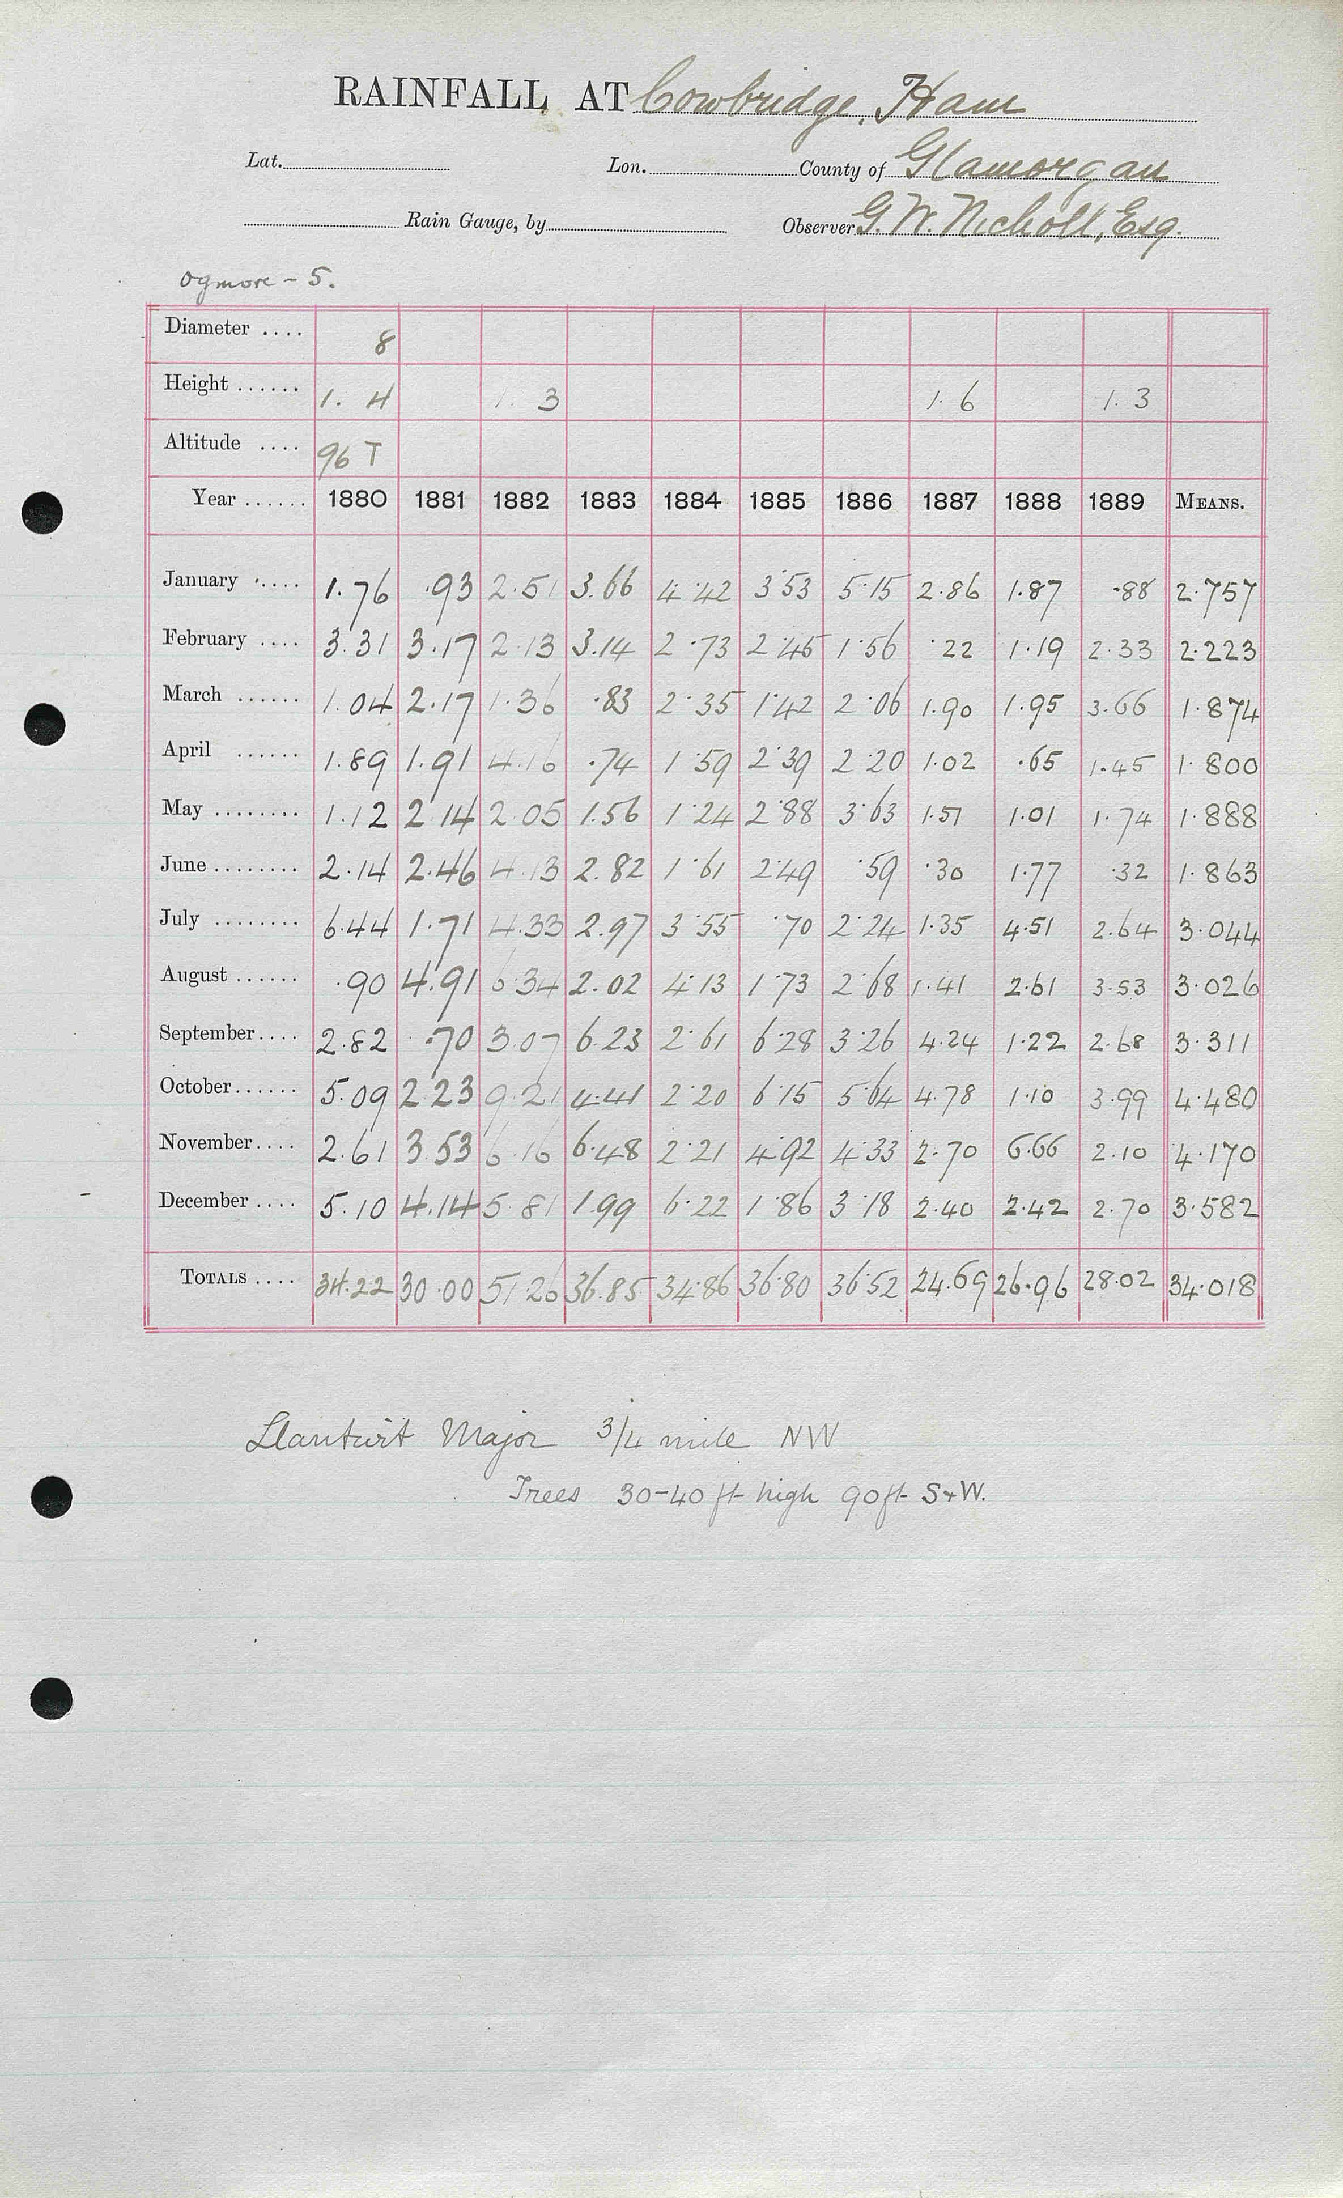 RAINFALL AT Cowbridge, Ham
Lat. Lon. County of Glamorgan
Rain Gauge, by Observer G. W. Nicholl, Esq.
Ogmore - 5.
Diameter .... 8
Height ...... 1. 4 1. 3 1. 6 1. 3
Altitude .... 96 T
Year ...... 1880 1881 1882 1883 1884 1885 1886 1887 1888 1889 MEANS.
January .... 1.76 .93 2.51 3.66 4.42 3.53 5.15 2.86 1.87 .88 2.757
February .... 3.31 3.17 2.13 3.14 2.73 2.45 1.56 .22 1.19 2.33 2.223
March ...... 1.04 2.17 1.36 .83 2.35 1.42 2.06 1.90 1.95 3.66 1.874
April ...... 1.89 1.91 4.16 .74 1.59 2.39 2.20 1.02 .65 1.45 1.800
May ........ 1.12 2.14 2.05 1.56 1.24 2.88 3.63 1.51 1.01 1.74 1.888
June ........ 2.14 2.46 4.13 2.82 1.61 2.49 .59 .30 1.77 .32 1.863
July ........ 6.44 1.71 4.33 2.97 3.55 .70 2.24 1.35 4.51 2.64 3.044
August ...... .90 4.91 6.34 2.02 4.13 1.73 2.68 1.41 2.61 3.53 3.026
September .... 2.82 .70 3.07 6.23 2.61 6.28 3.26 4.24 1.22 2.68 3.311
October ...... 5.09 2.23 9.21 4.41 2.20 6.15 5.64 4.78 1.10 3.99 4.480
November .... 2.61 3.53 6.16 6.48 2.21 4.92 4.33 2.70 6.66 2.10 4.170
December .... 5.10 4.14 5.81 1.99 6.22 1.86 3.18 2.40 2.42 2.70 3.582
TOTALS .... 34.22 30.00 51.26 36.85 34.86 36.80 36.52 24.69 26.96 28.02 34.018
Llantwit Major 3/4 mile NW
Trees 30-40 ft high 90ft S+W.